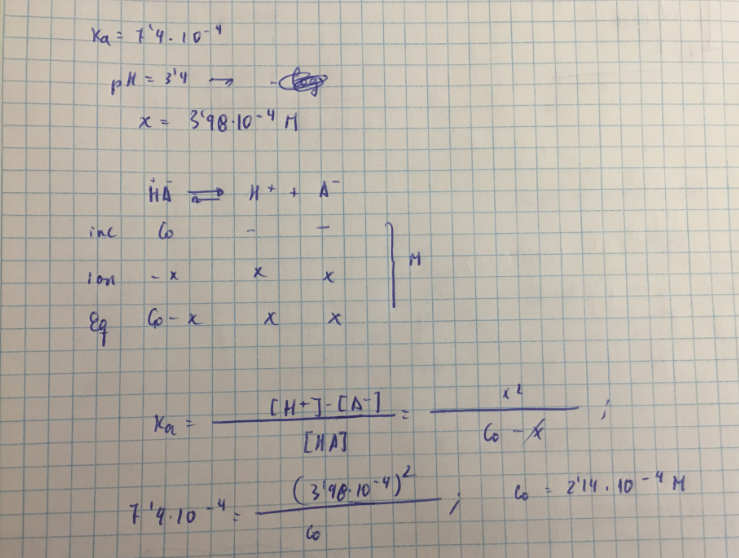 Ka = 7'4·10⁻⁴
pH = 3'4 →
x = 3'98·10⁻⁴ M
HA ⇌ H⁺ + A⁻
inc Co - -
ion -x x x
Eq Co-x x x
M
Ka = [H+]·[A⁻] / [HA] = x² / Co - x ;
7'4·10⁻⁴ = (3'98·10⁻⁴)² / Co ; Co = 2'14·10⁻⁴ M